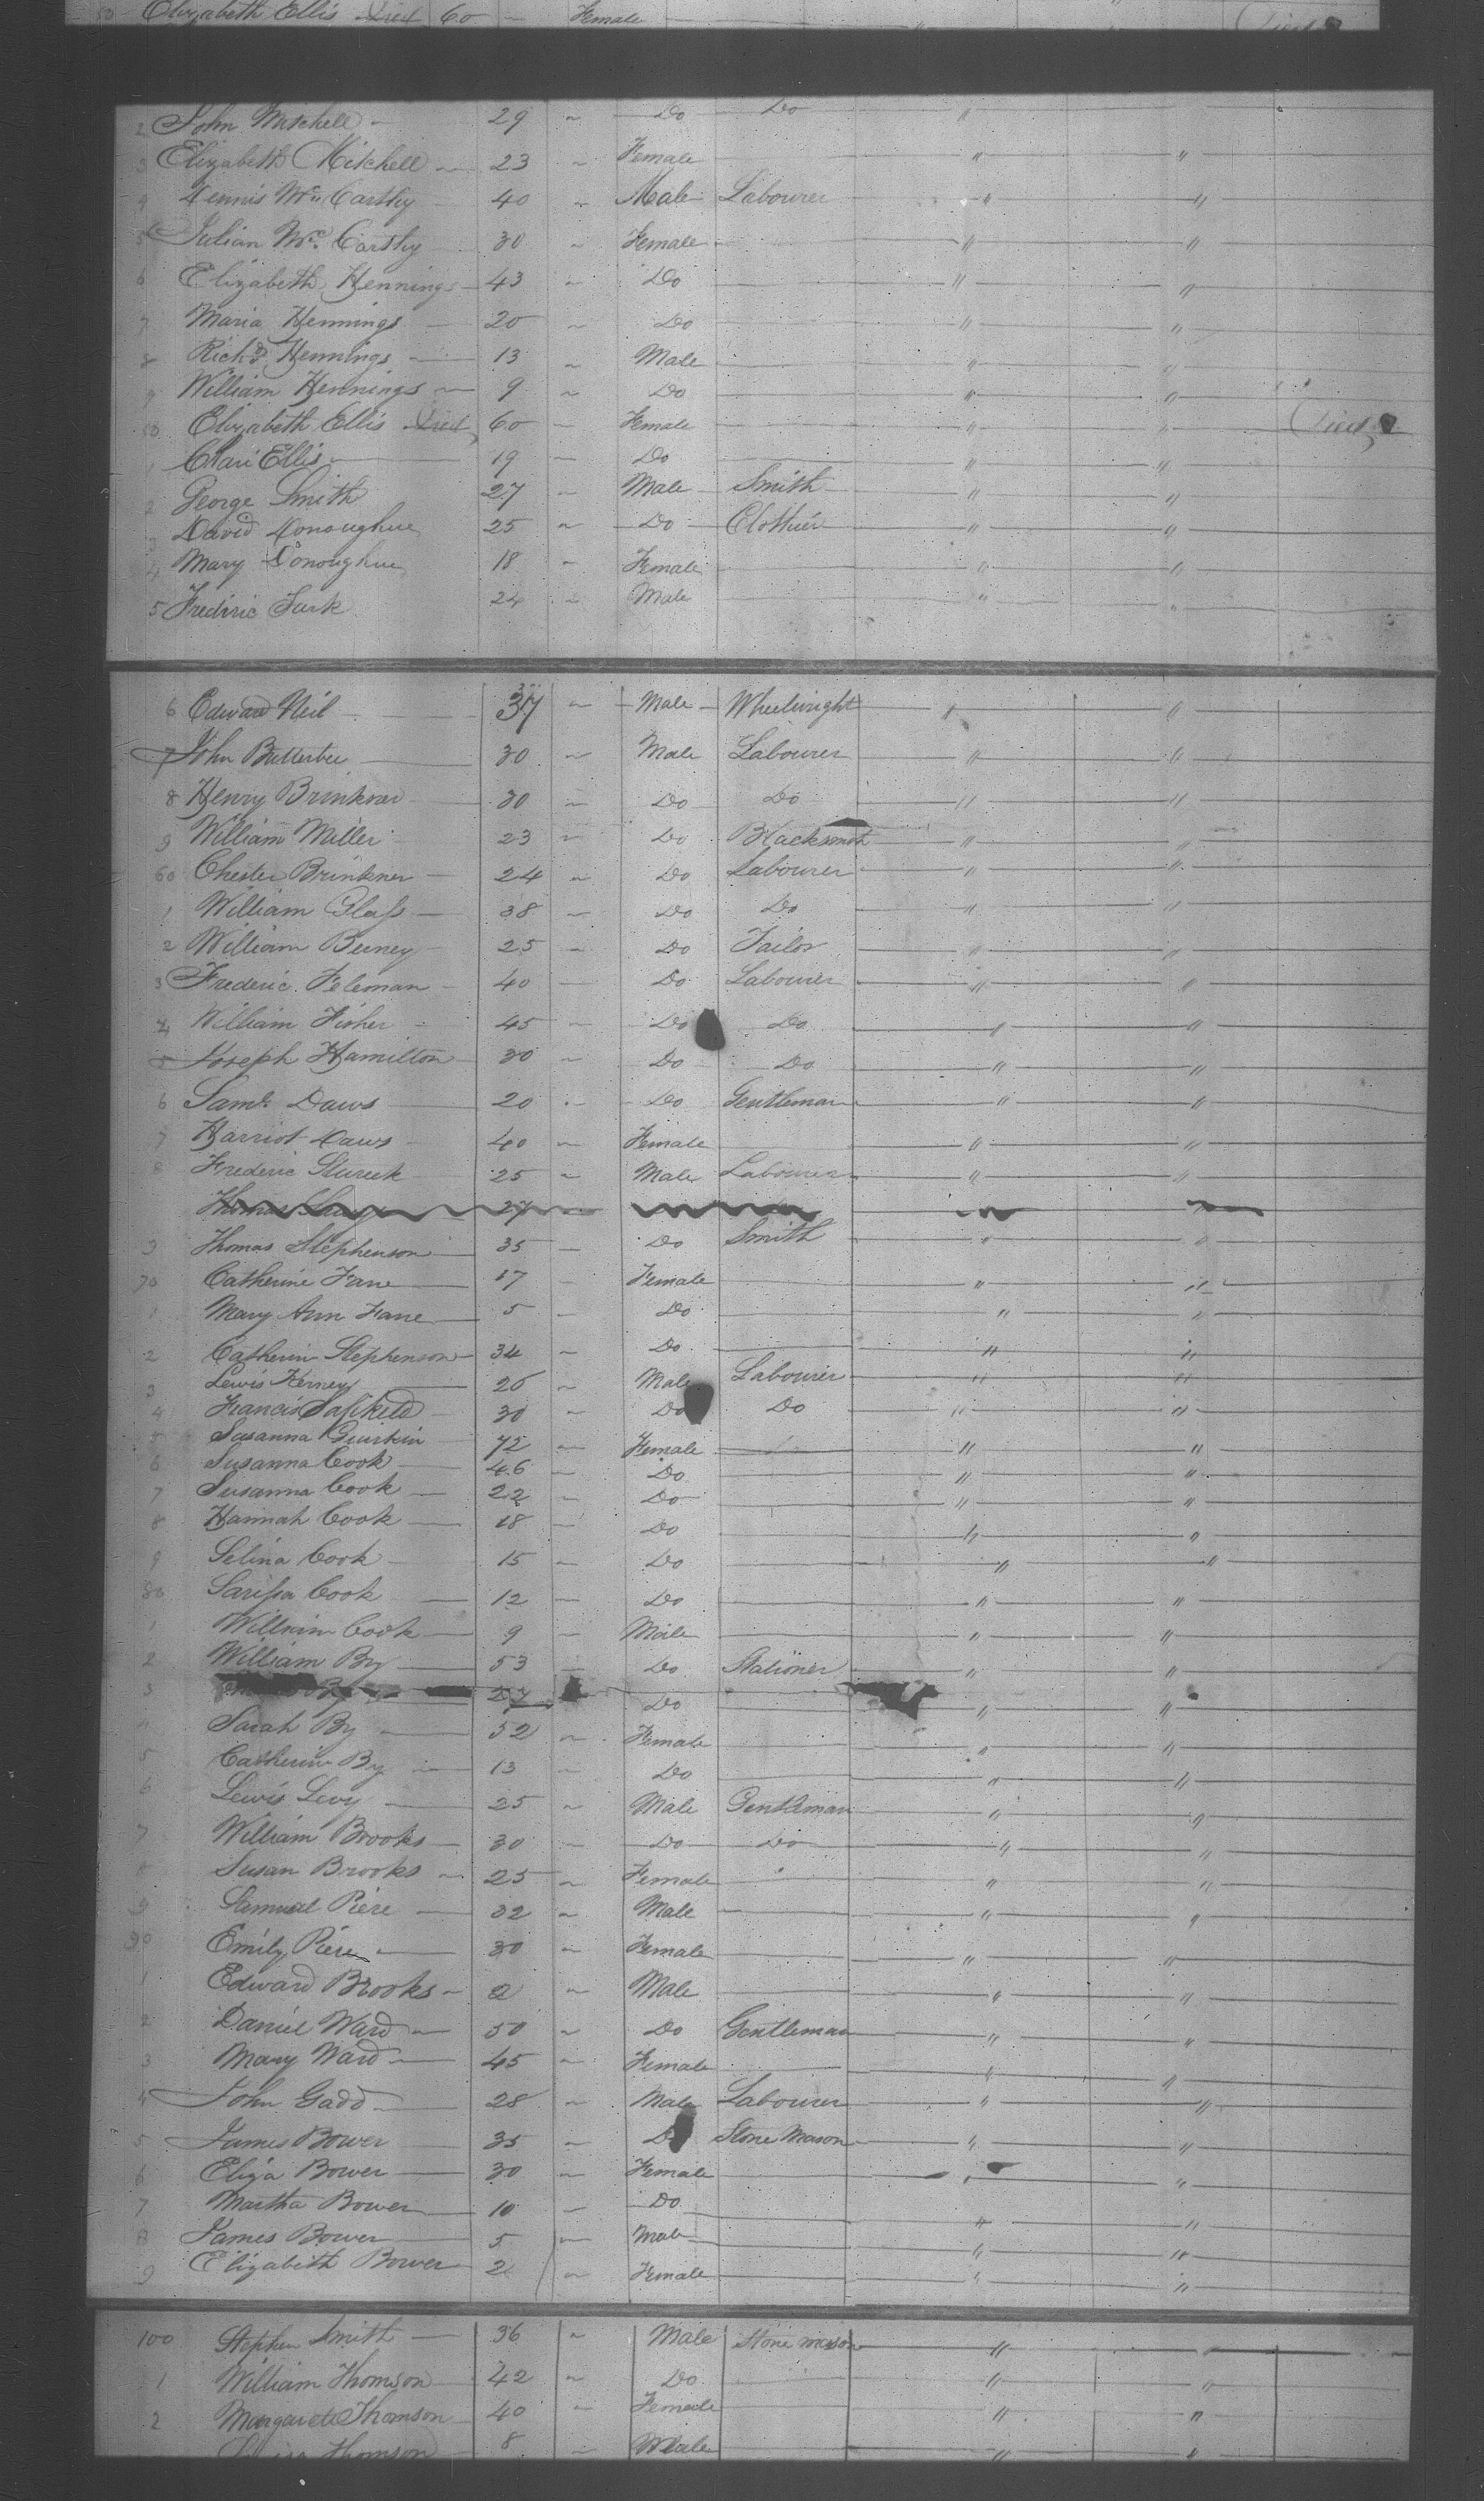 50 Elizabeth Ellis Died 60 ~ Female " " Died
2 John Mitchell 29 ~ Do Do "
3 Elizabeth Mitchell 23 ~ Female " "
4 Dennis Mc Carthy 40 ~ Male Labourer " "
5 Julian Mc Carthy 30 ~ Female " "
6 Elizabeth Hennings 43 ~ Do " "
7 Maria Hennings 20 ~ Do " "
8 Richd Hennings 13 ~ Male " "
9 William Hennings 9 ~ Do " "
50 Elizabeth Ellis Died 60 ~ Female " " Died
1 Ellis 19 ~ Do " "
2 George Smith 27 ~ Male Smith " "
3 David Donoughue 25 ~ Do Clothier " "
4 Mary Donoughue 18 ~ Female " "
5 Frederic Turk 24 ~ Male " "
6 Edward Neil 37 ~ Male Wheelwright " "
7 John Butterbee 30 ~ Male Labourer " "
8 Henry Brinkner 30 ~ Do Do " "
9 William Miller 23 ~ Do Blacksmith " "
60 Chester Brinkner 24 ~ Do Labourer " "
1 William Glass 38 ~ Do Do " "
2 William Beeney 25 ~ Do Tailor " "
3 Frederic Feleman 40 ~ Do Labourer " "
4 William Fisher 45 ~ Do Do " "
5 Joseph Hamilton 30 ~ Do Do " "
6 Saml. Daws 20 ~ Do Gentleman " "
7 Harriot Daws 40 ~ Female " "
8 Frederic 25 ~ Male Labourer " "
Thomas 27
9 Thomas Stephenson 35 ~ Do Smith " "
70 Catherine Fane 17 ~ Female " "
1 Mary Ann Fane 5 ~ Do " "
2 Catherin Stephenson 34 ~ Do " "
3 Lewis Kerney 26 ~ Male Labourer " "
4 Francis 30 ~ Do Do " "
5 Susanna 72 ~ Female " "
6 Susanna Cook 46 ~ Do " "
7 Susanna Cook 22 ~ Do " "
8 Hannah Cook 18 ~ Do " "
9 Selina Cook 15 ~ Do " "
80 Larissa Cook 12 ~ Do " "
1 William Cook 9 ~ Male " "
2 William By 53 ~ Do Stationer " "
3 27 Do " "
4 Sarah By 52 ~ Female " "
5 Catherine By 13 ~ Do " "
6 Lewis Levy 25 ~ Male Gentleman " "
7 William Brooks 30 ~ Do Do " "
8 Susan Brooks 25 ~ Female " "
9 Samuel Piere 32 ~ Male " "
90 Emily Piere 30 ~ Female " "
1 Edward Brooks 2 ~ Male " "
2 Daniel Ward 50 ~ Do Gentleman " "
3 Mary Ward 45 ~ Female " "
4 John Gadd 28 ~ Male Labourer " "
5 James Bower 35 ~ Do Stone Mason " "
6 Eliza Bower 30 ~ Female " "
7 Martha Bower 10 ~ Do " "
8 James Bower 5 ~ Male " "
9 Elizabeth Bower 2 ~ Female " "
100 Stephen Smith 36 ~ Male Stone mason " "
1 William Thomson 42 ~ Do " "
2 Margarete Thomson 40 ~ Female " "
Thomson 8 ~ Male " "